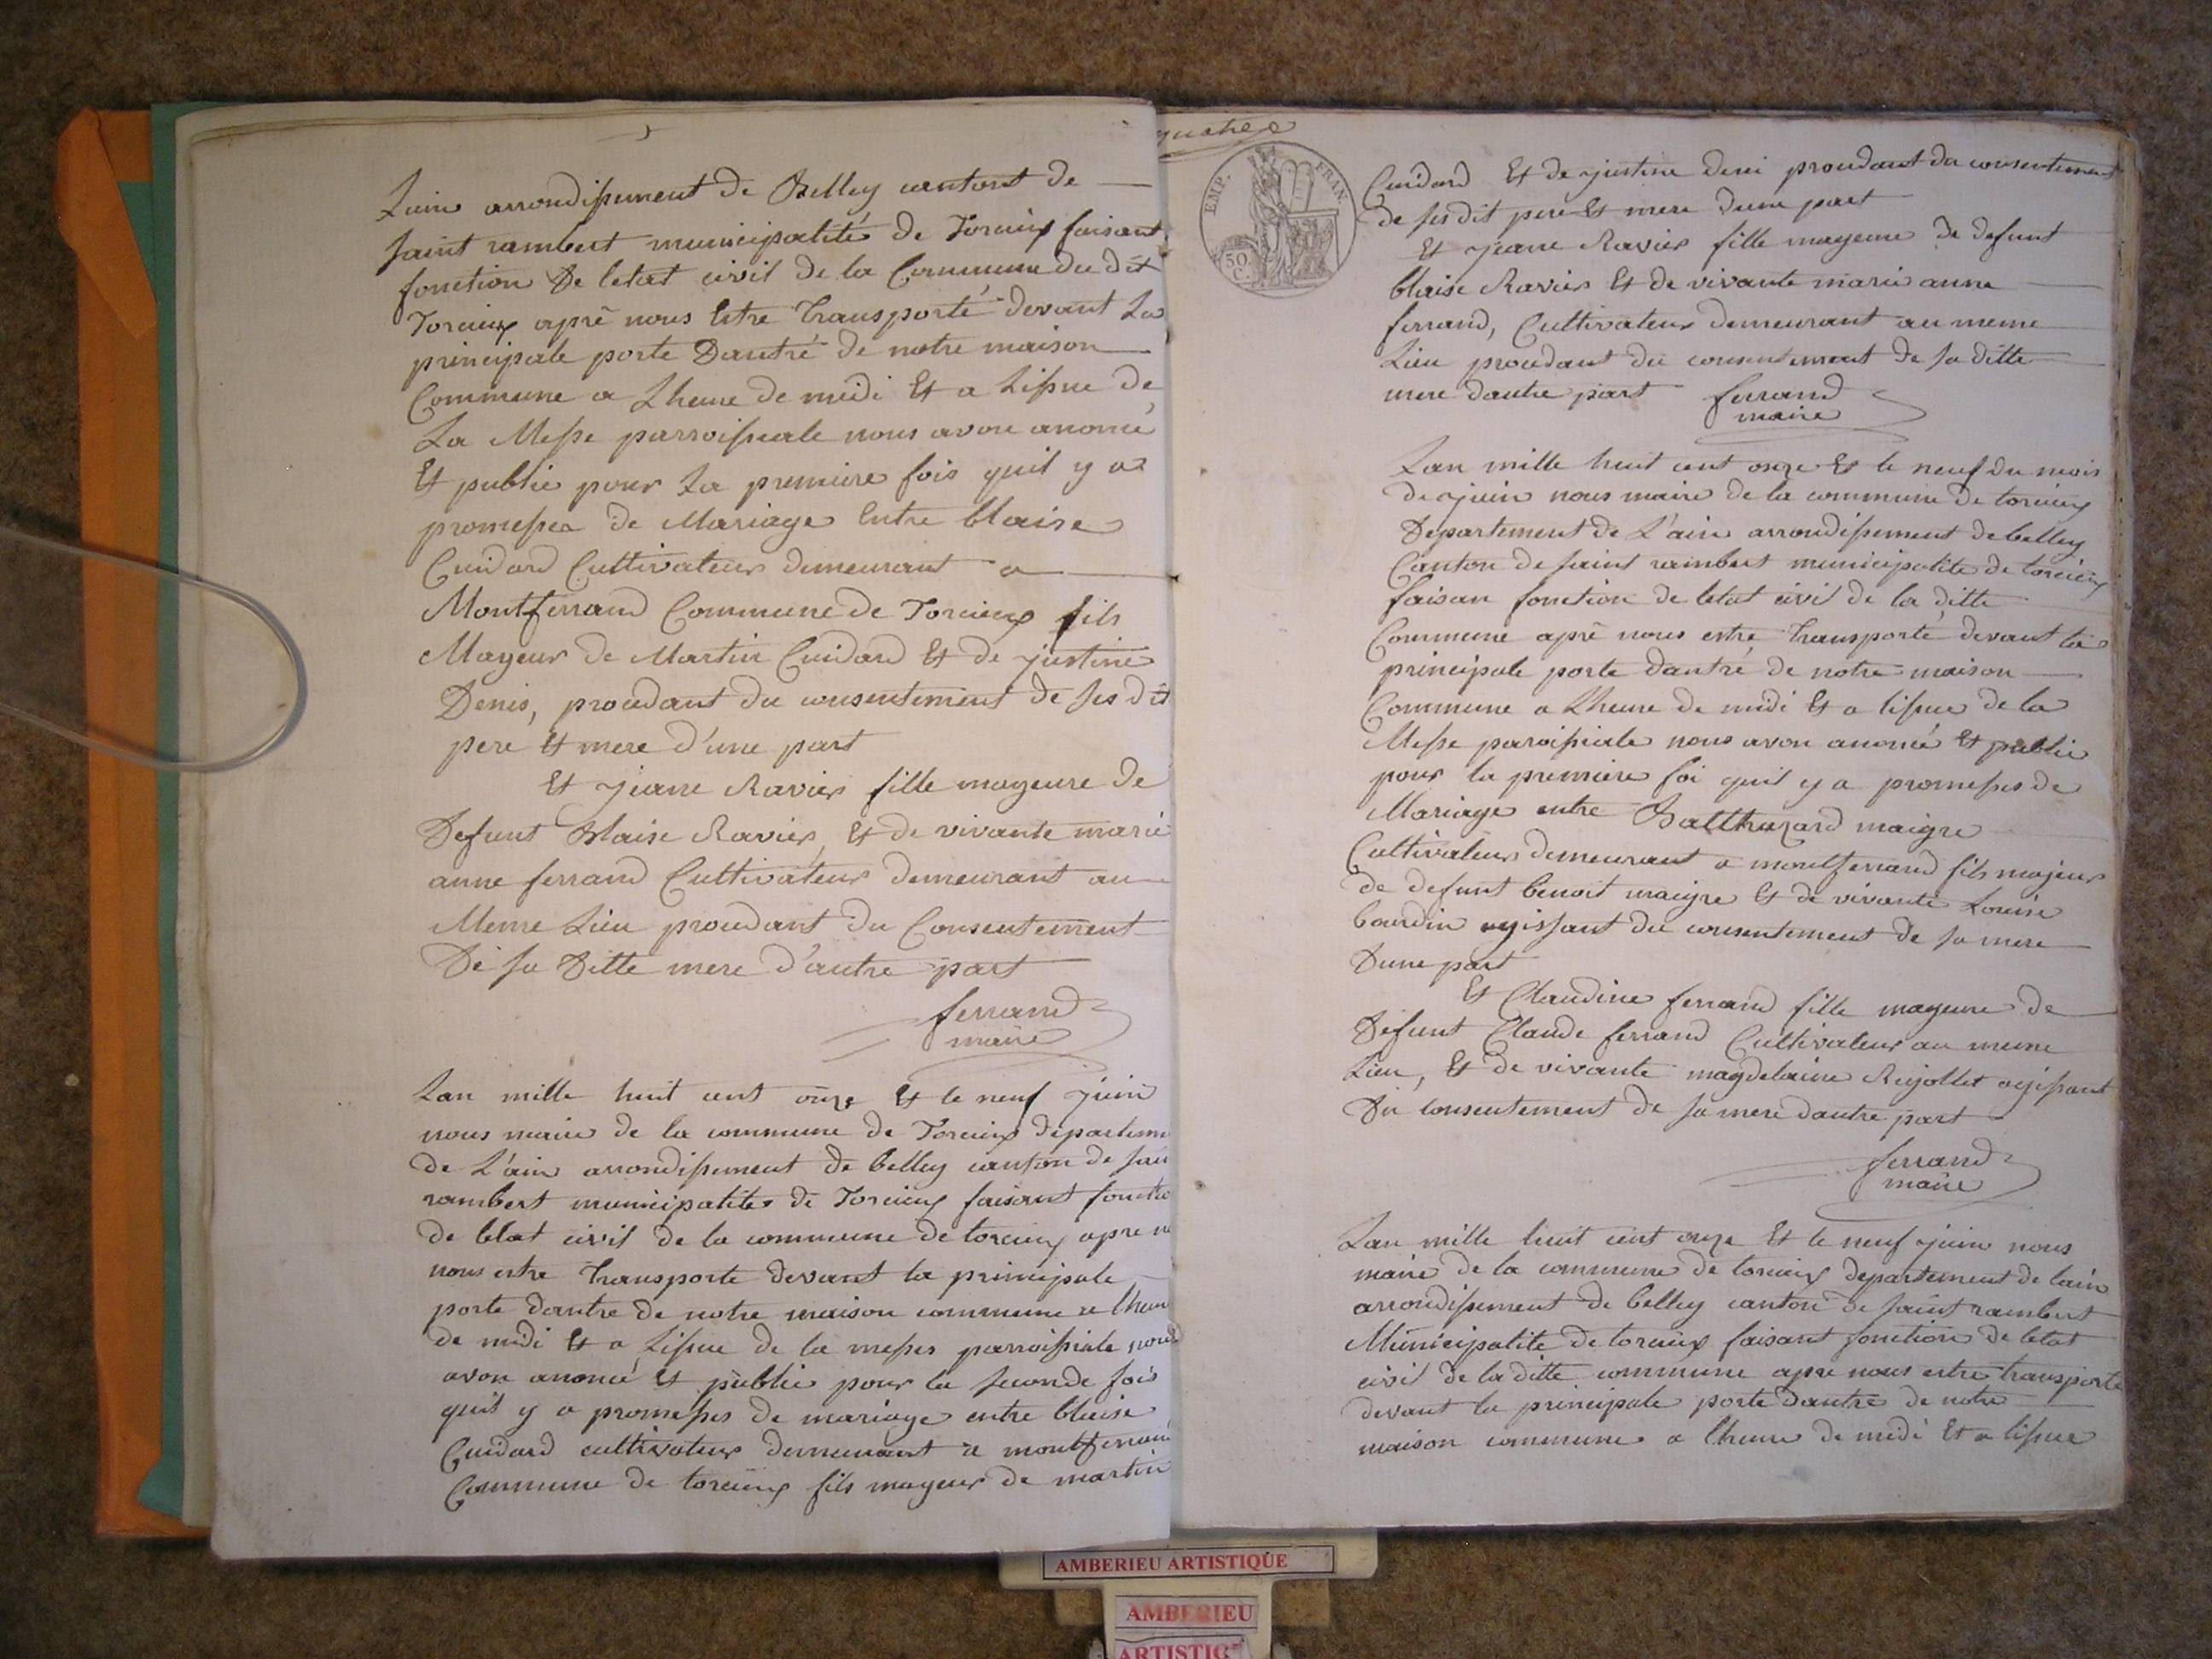 Lain arrondissement de Belley cantont de
saint rambert municipalité de Torcieux faisant
fonction De letat civil de la Commune du dit
Torcieux aprê nous Estre Transporté devant La
principale porte Dantré de notre maison
Commune a Lheure de midi Et a Lissue de
La Messe parroissiale nous avon anoncé
Et publié pour La premiere fois quil y a
promesses de Mariage Entre blaise
Cuidard Cultivateur demeurant a
Montferrand Commune de Torcieux fils
Mayeur de Martin Cuidard Et de justine
Denis, procedant du consentement de ses dit
pere Et mere d'une part
Et jeane Ravier fille mayeure de
Defunt Blaise Ravier, Et de vivante marie
anne ferrand Cultivateur demeurant au
Meme Lieu procedant du Consentement
De sa Ditte mere d'autre part
ferrand
maire
Lan mille huit cent onze Et le neuf juin
nous maire de la commune de Torcieux departeme
de L'ain arrondissement de belley canton de sain
rambert municipalité de Torcieux faisant fonctio
de letat civil de la commune de torcieux apre
nous estre Transporté devant la principale
porte dantre de notre maison commune a lheur
de midi Et a Lissue de la messes parroissiale nous
avon anoncé Et publié pour la seconde fois
quil y a promesses de mariage entre blaise
Cuidard cultivateur demeurant a montferrand
Commune de torcieux fils mayeur de martin
EMP. FRAN.
50
C.
Cuidard Et de justine deni procedant du consentement
de ses dit pere Et mere dune part
Et jeane Ravier fille mayeure de defunt
blaise Ravier Et de vivante marie anne
ferrand, Cultivateur demeurant au meme
Lieu procedant du consentement de sa ditte
mere dautre part ferrand
maire
Lan mille huit cent onze Et le neuf du mois
de juin nous maire de la commune de torcieux
Departement de L'ain arrondissement de belley
Canton de saint rambert municipalite de torcieux
faisan fonction de letat civil de la ditte
Commune aprê nous estre Transporté devant la
principale porte dantré de notre maison
Commune a Lheure de midi Et a lissue de la
Messe paroissiale nous avon anoncé Et publié
pour la premiere foi quil y a promesses de
Mariage entre Balthazard maigre
Cultivateur demeurant a montferrand fils majeur
de defunt benoit maigre Et de vivante Louise
bourdin agissant du consentement de sa mere
Dune part
Et Claudine ferrand fille mayeure de
Defunt Claude ferrand Cultivateur au meme
Lieu, Et de vivante magdelaine Rujollet agissant
Du consentement de sa mere dautre part
ferrand
maire
Lan mille huit cent onze Et le neuf juin nous
maire de la commune de torcieux departement de lain
arrondissement de belley canton de saint rambert
Municipalite de torcieux faisant fonction de letat
civil de la ditte commune apre nous estre transporté
devant la principale porte dantre de notre
maison commune a lheure de midi Et a lissue
AMBERIEU ARTISTIQUE
AMBERIEU